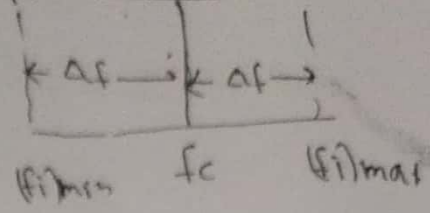 Δf Δf
(fi)min fc (fi)max